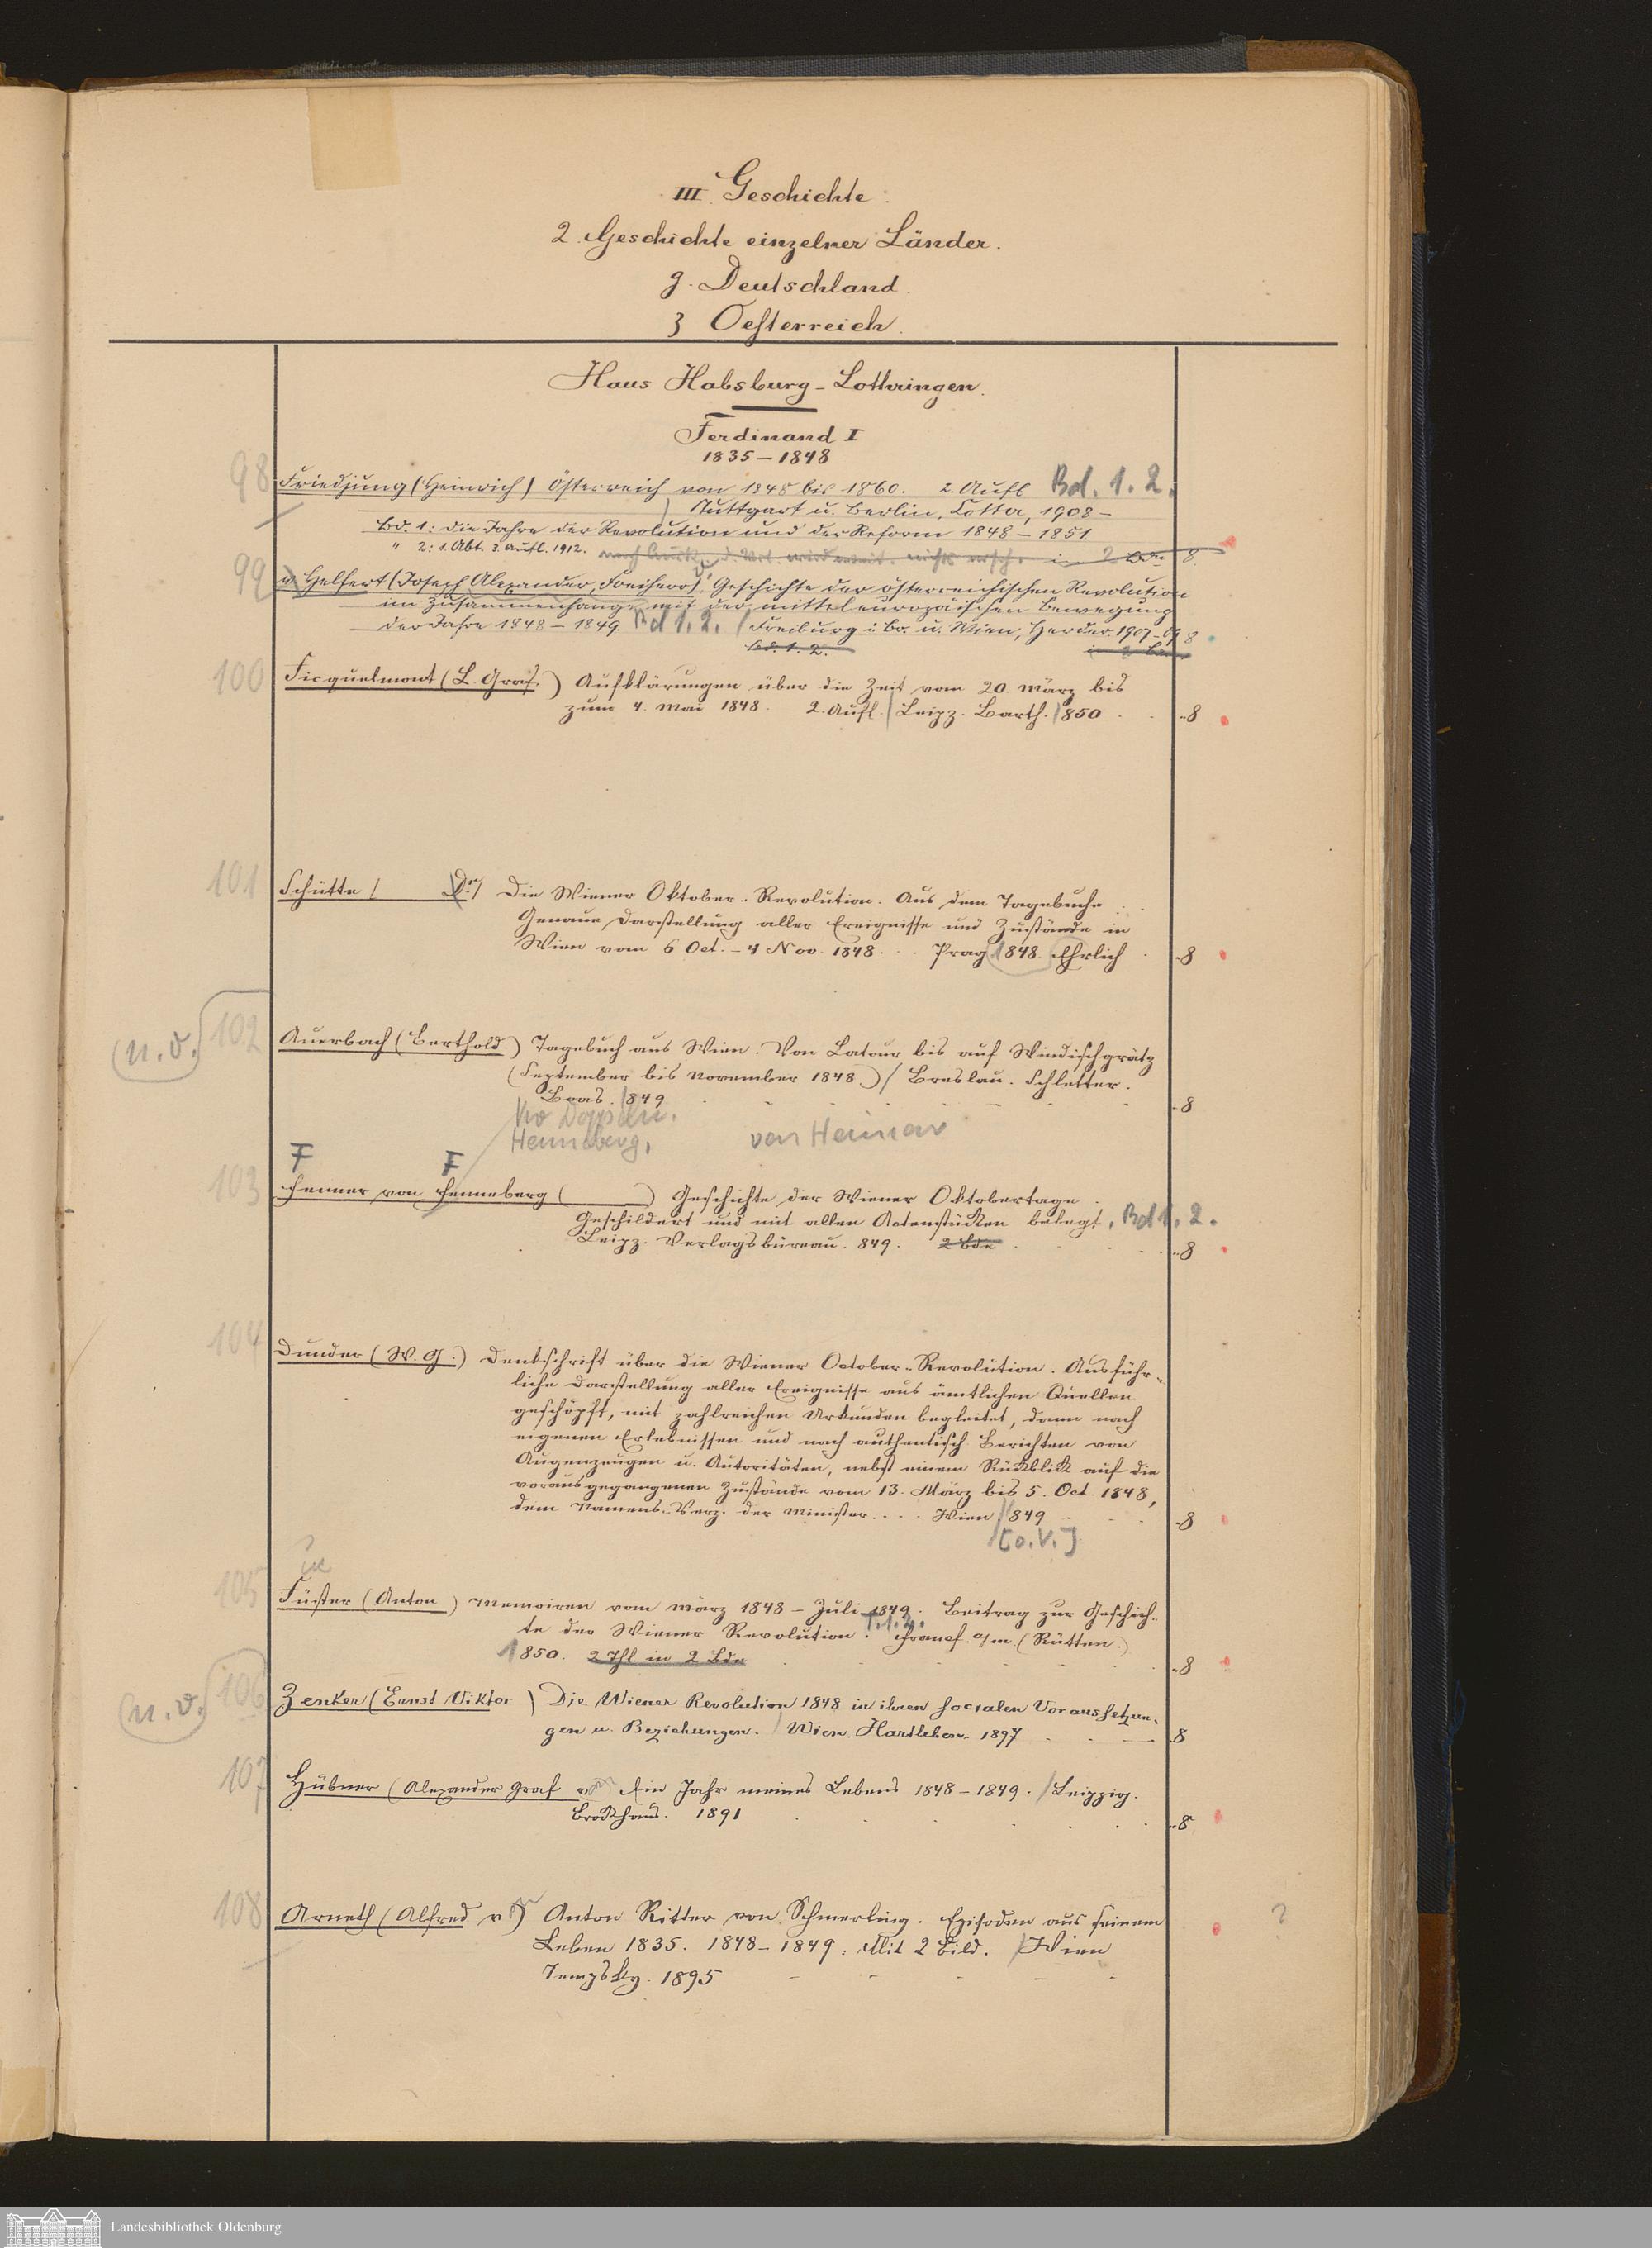 III. Geschichte.
2. Geschichte einzelner Länder.
g. Deutschland.
3 Oesterreich.
Haus Habsburg-Lothringen.
Ferdinand I
1835–1848
98 Friedjung (Heinrich) Österreich von 1848 bis 1860. 2. Aufl. Bd. 1. 2.
Stuttgart u. Berlin, Cotta, 1908–
Bd. 1: Die Jahre der Revolution und der Reform 1848–1851.
" 2: 1. Abt. 3. Aufl. 1912. 2 Bde 8
99 v. Helfert (Joseph Alexander, Freiherr) Geschichte der österreichischen Revolution
im Zusammenhange mit der mitteleuropäischen Bewegung
der Jahre 1848–1849. Bd 1. 2. / Freiburg i. Br. u. Wien, Herder. 1907–09 8
Bd. 1. 2.
100 Ficquelmont (L. Graf.) Aufklärungen über die Zeit vom 20. März bis
zum 4. Mai 1848. 2. Aufl. / Leipz. Barth. 1850 8
101 Schütte ( Dr.) Die Wiener Oktober-Revolution. Aus dem Tagebuche
Genaue Darstellung aller Ereignisse und Zustände in
Wien vom 6 Oct. – 4 Nov. 1848. Prag 1848. Ehrlich 8
(n. v.) 102 Auerbach (Berthold) Tagebuch aus Wien. Von Latour bis auf Windischgrätz
(September bis November 1848) / Breslau. Schletter.
1849 8
Henneberg, von
F F
103 Fenner von Fenneberg ( ) Geschichte der Wiener Oktobertage.
Geschildert und mit allen Actenstücken belegt. Bd 1. 2.
Leipz. Verlagsbüreau. 849. 2 Bde 8
104 Dunder (W. G.) Denkschrift über die Wiener October-Revolution. Ausführ-
liche Darstellung aller Ereignisse aus ämtlichen Quellen
geschöpft, mit zahlreichen Urkunden begleitet, dann nach
eigenen Erlebnissen und nach authentisch. Berichten von
Augenzeugen u. Autoritäten, nebst einem Rückblick auf die
vorausgegangenen Zustände vom 13. März bis 5. Oct. 1848,
dem Namens-Verz. der Minister .... Wien / 1849 8
[o. V.]
ü
105 Füster (Anton) Memoiren vom März 1848 – Juli 1849. Beitrag zur Geschich-
te der Wiener Revolution. T. 1. 2. Francf. a/m. (Rütten.)
1850. 2 Thl in 2 Bde 8
(n. v.) 106 Zenker (Ernst Viktor) Die Wiener Revolution 1848 in ihren socialen Voraussetzun-
gen u. Beziehungen. / Wien. Hartleben. 1897 8
107 Hübner (Alexander Graf v.) Ein Jahr meines Lebens 1848–1849. / Leipzig.
Brockhaus. 1891 8
108 Arneth (Alfred v.) Anton Ritter von Schmerling. Episoden aus seinem ?
Leben 1835. 1848–1849. Mit 2 Bild. / Wien
Tempsky. 1895
Landesbibliothek Oldenburg